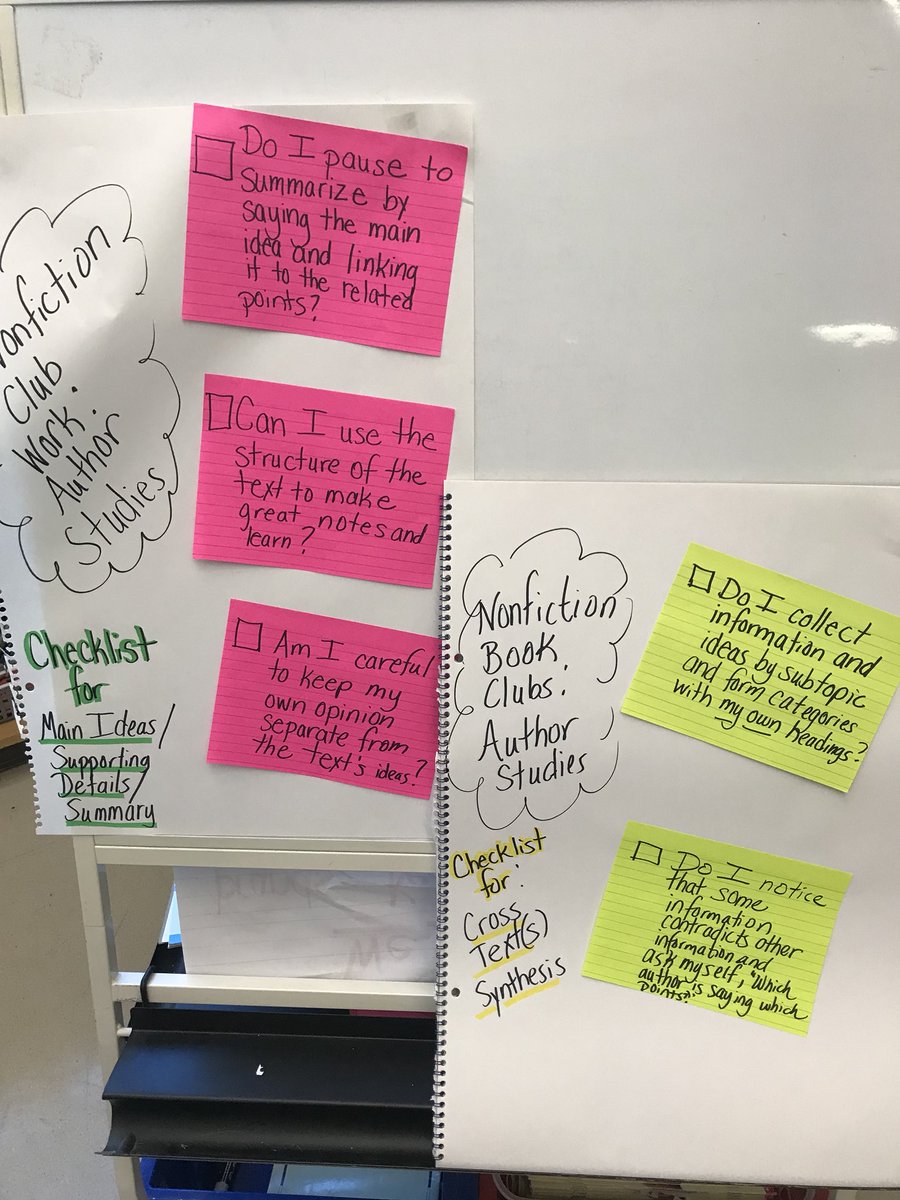 onfiction
Club
Work.
Author
Studies
Checklist
for
Main Ideas/
Supporting
Details/
Summary
Do I pause to
summarize by
saying the main
idea and linking
it to the related
points?
Can I use the
structure of the
text to make
great notes and
learn?
Am I careful
to keep my
own opinion
separate from
the text's ideas?
Nonfiction
Book
Clubs.
Author
Studies
Checklist
for:
Cross
Text(s)
Synthesis
Do I collect
information and
ideas by subtopic
and form categories
with my own headings?
Do I notice
that some
information
contradicts other
information and
ask myself, "Which
author is saying which
points?"